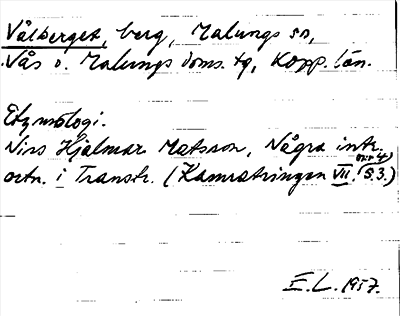 Vålberget, berg, Malungs sn,
Nås o. Malungs doms. tg, Kopp. län.
Etymologi.
Nirs Hjalmar Matsson, Några intr.
ortn. i Transtr. (Kamratringen VII, nr 4, S. 3.)
E. L. 1957.